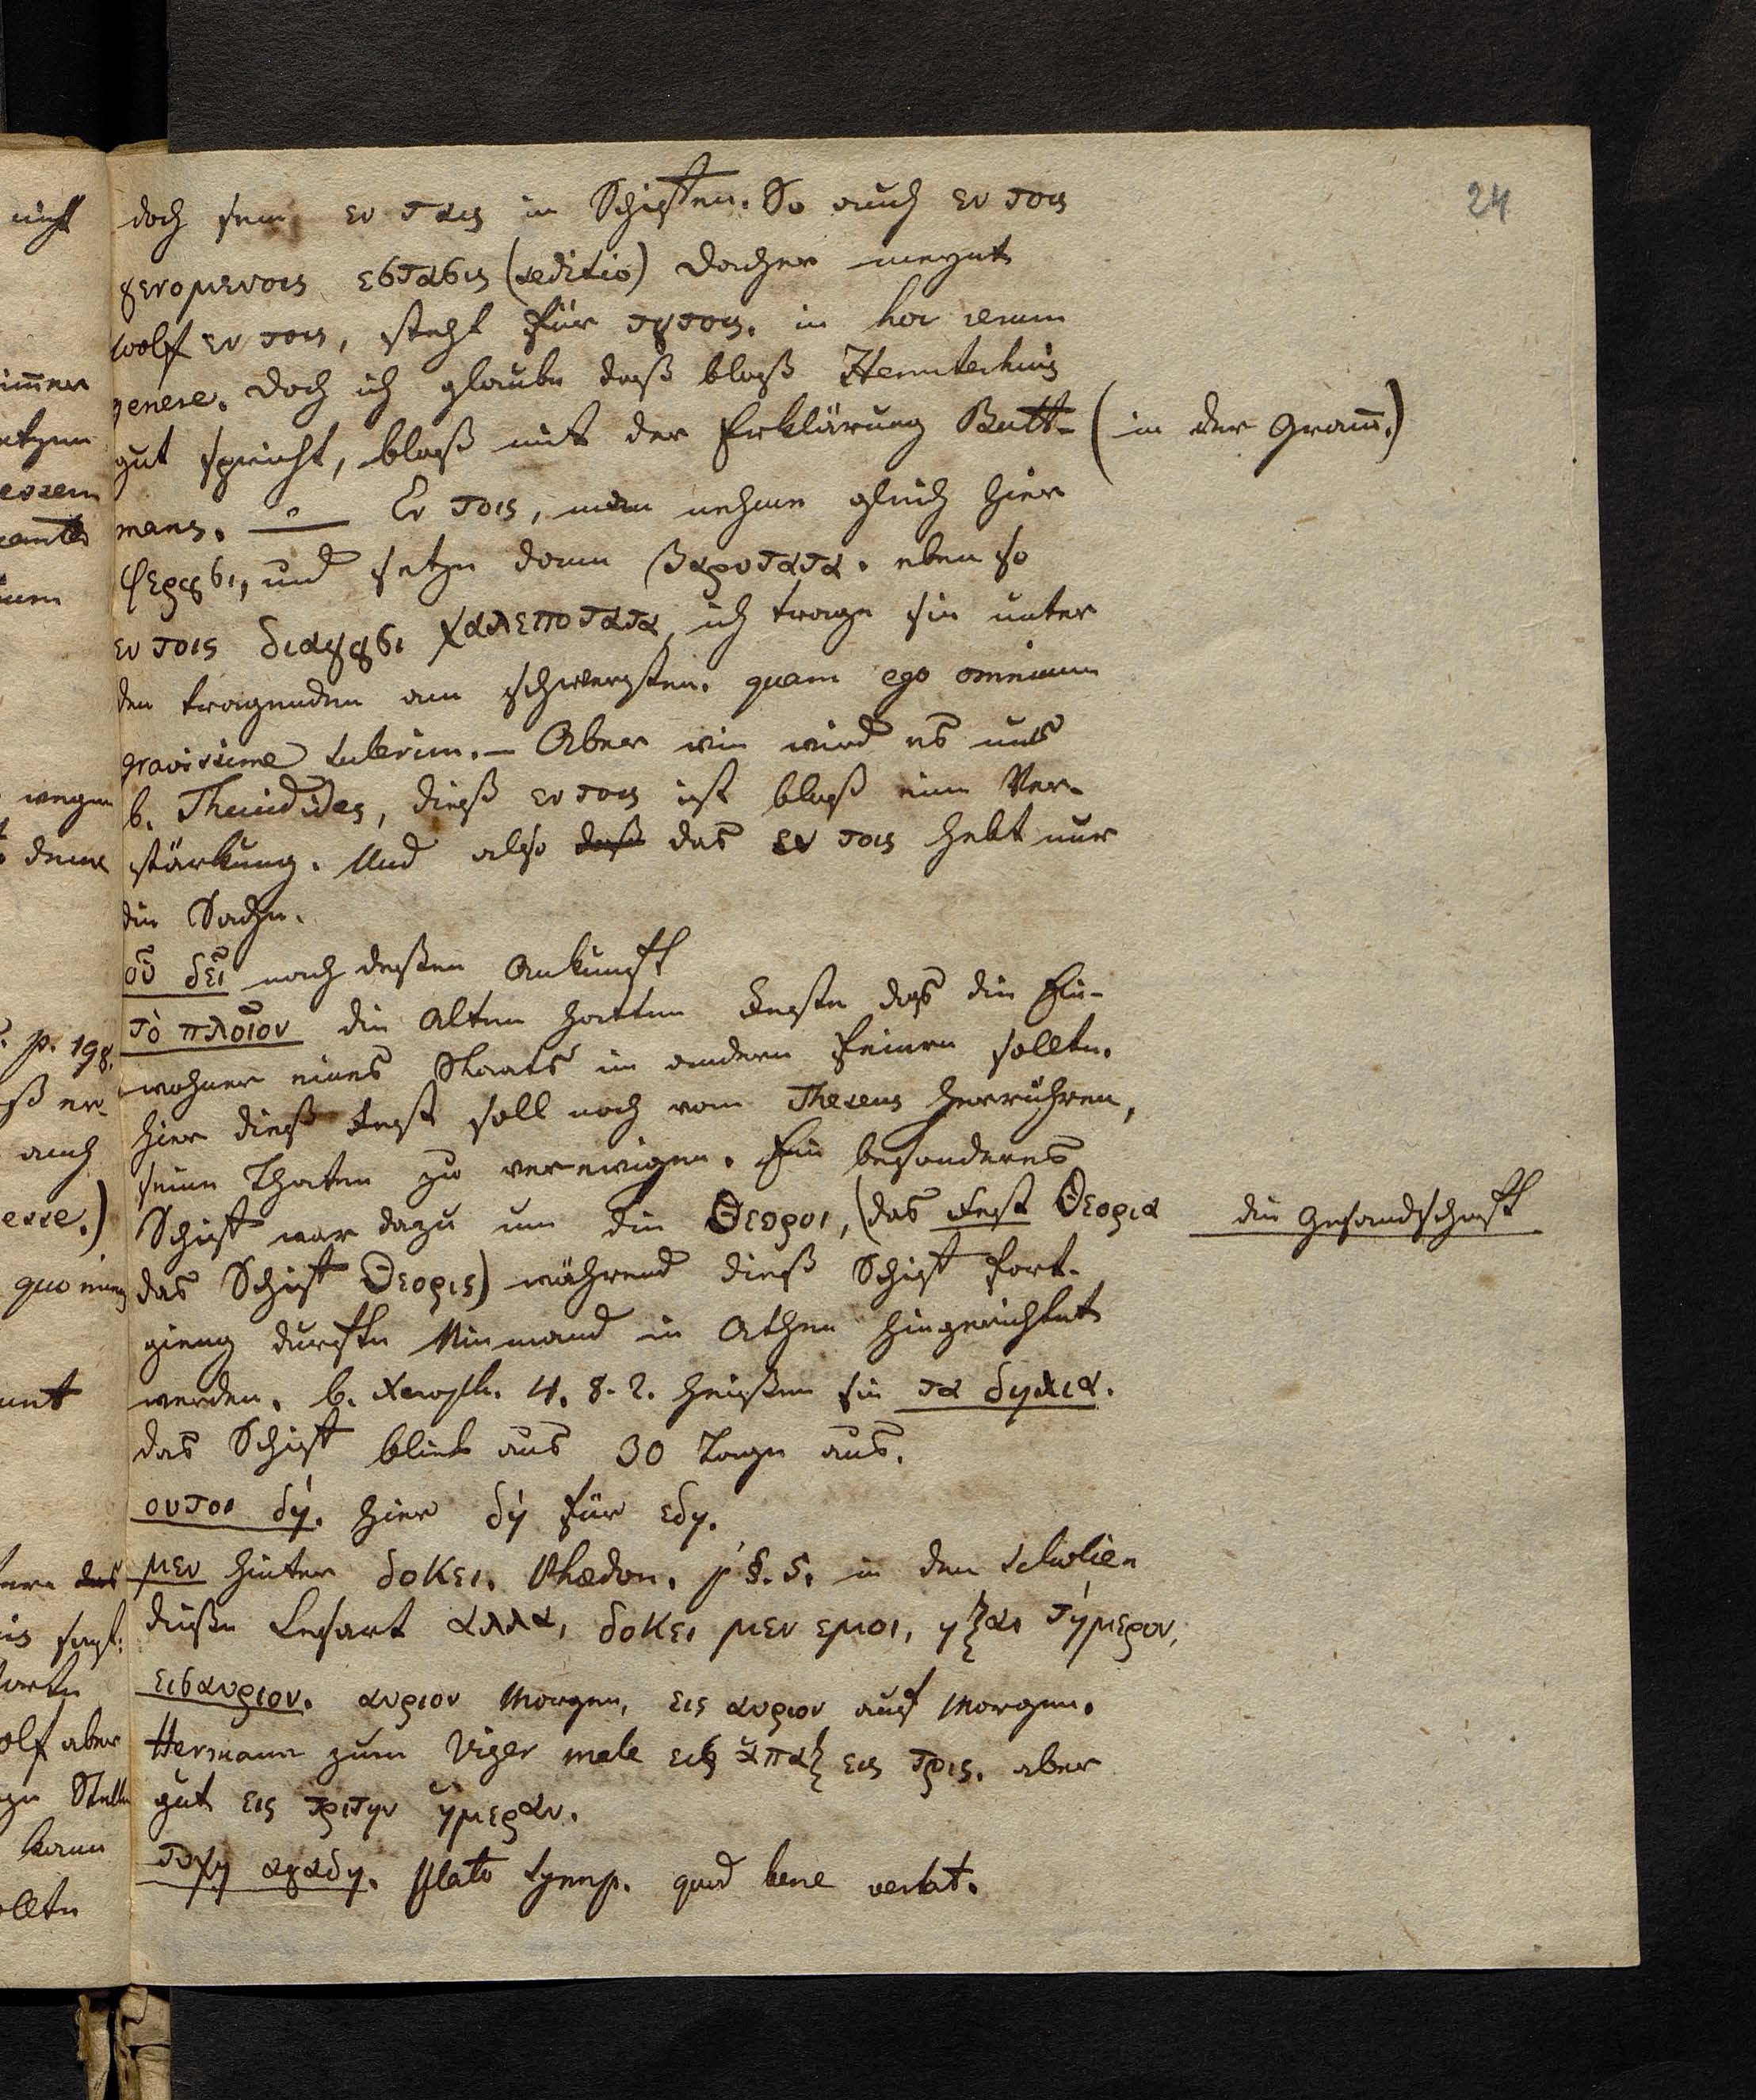 24
doch sein εν ταις in Schiffen. So auch εν τοις
γενομενοις εστασις (seditio) Dacher meynt
Wolf εν τοις, steht für τουτοις. in hoc rerum
genere. Doch ich glaube daß bloß Hemsterhuis
gut spricht, bloß mit der Erklärung Butt- (in der Gram̅.)
mans. — Εν τοις, man nehme gleich hier
φερουσι, und setze dann βαρυτατα. eben so
εν τοις διαγουσι χαλεποτατα, ich trage sie unter
den tragenden am schwersten. quam ego omnium
gravissime tulerim. — Aber wie wird es mit
b. Thucidides, dieß εν τοις ist bloß eine Ver-
stärkung. Und also daß das εν τοις hebt nur
die Sache.
οὗ δεῖ nach deßen Ankunft
τὸ πλοῖον die Alten hatten Feste das die Ein-
wohner eines Staats im andern feiern sollte.
hier dieß Fest soll noch vom Theseus herrühren,
seine Thaten zu verewigen. Ein besonderes
Schiff war dazu um die Θεοροι, (das Fest Θεορια die Gesandschaft
das Schiff Θεορις) während dieß Schiff fort-
gieng durfte Niemand in Athen hingerichtet
werden. b. Xenoph. 4. 8. 2. heißen sie τα δηλια.
das Schiff blieb aus 30 Tage aus.
ουτοι δή. hier δή für εδη.
μεν hinter δοκει. Phædon. p §. 5. in den Scholien
dieße Lesart αλλα, δοκει μεν εμοι, ηξαι τήμερον,
εισαυριον. αυριον Morgen, εις αυριον auf Morgen.
Hermann zum Viger male εις ἁπαξ εις τρις. aber
gut εις τριτην ἡμεραν.
τυχη αγαθη. Plato Symp. quod bene vertat.
nicht
immer
wegen
p. 198.
auch
esse.)
olf aber
kann